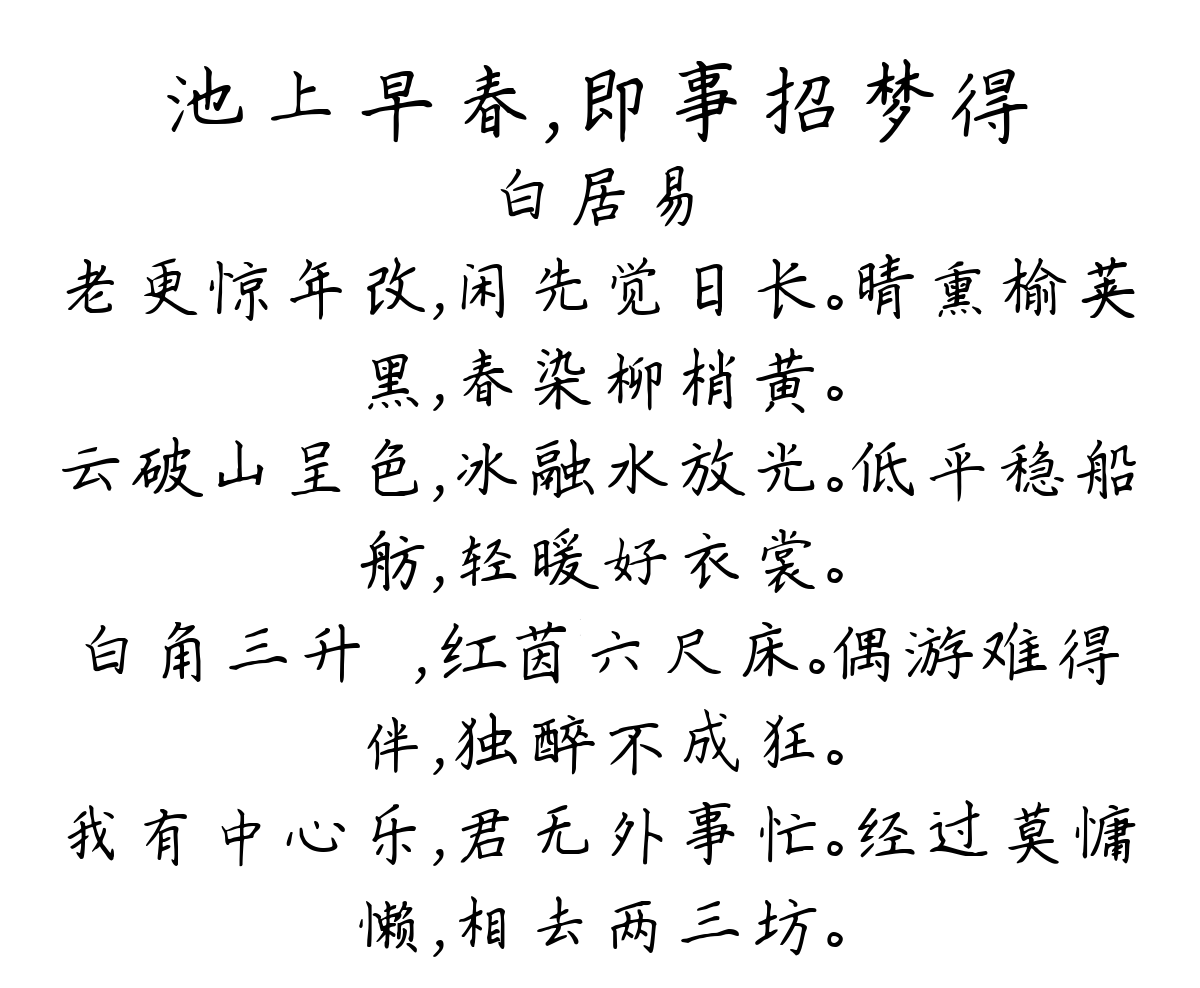 池上早春,即事招梦得
白居易
老更惊年改,闲先觉日长。晴熏榆荚
黑,春染柳梢黄。
云破山呈色,冰融水放光。低平稳船
舫,轻暖好衣裳。
白角三升 ,红茵六尺床。偶游难得
伴,独醉不成狂。
我有中心乐,君无外事忙。经过莫慵
懒,相去两三坊。